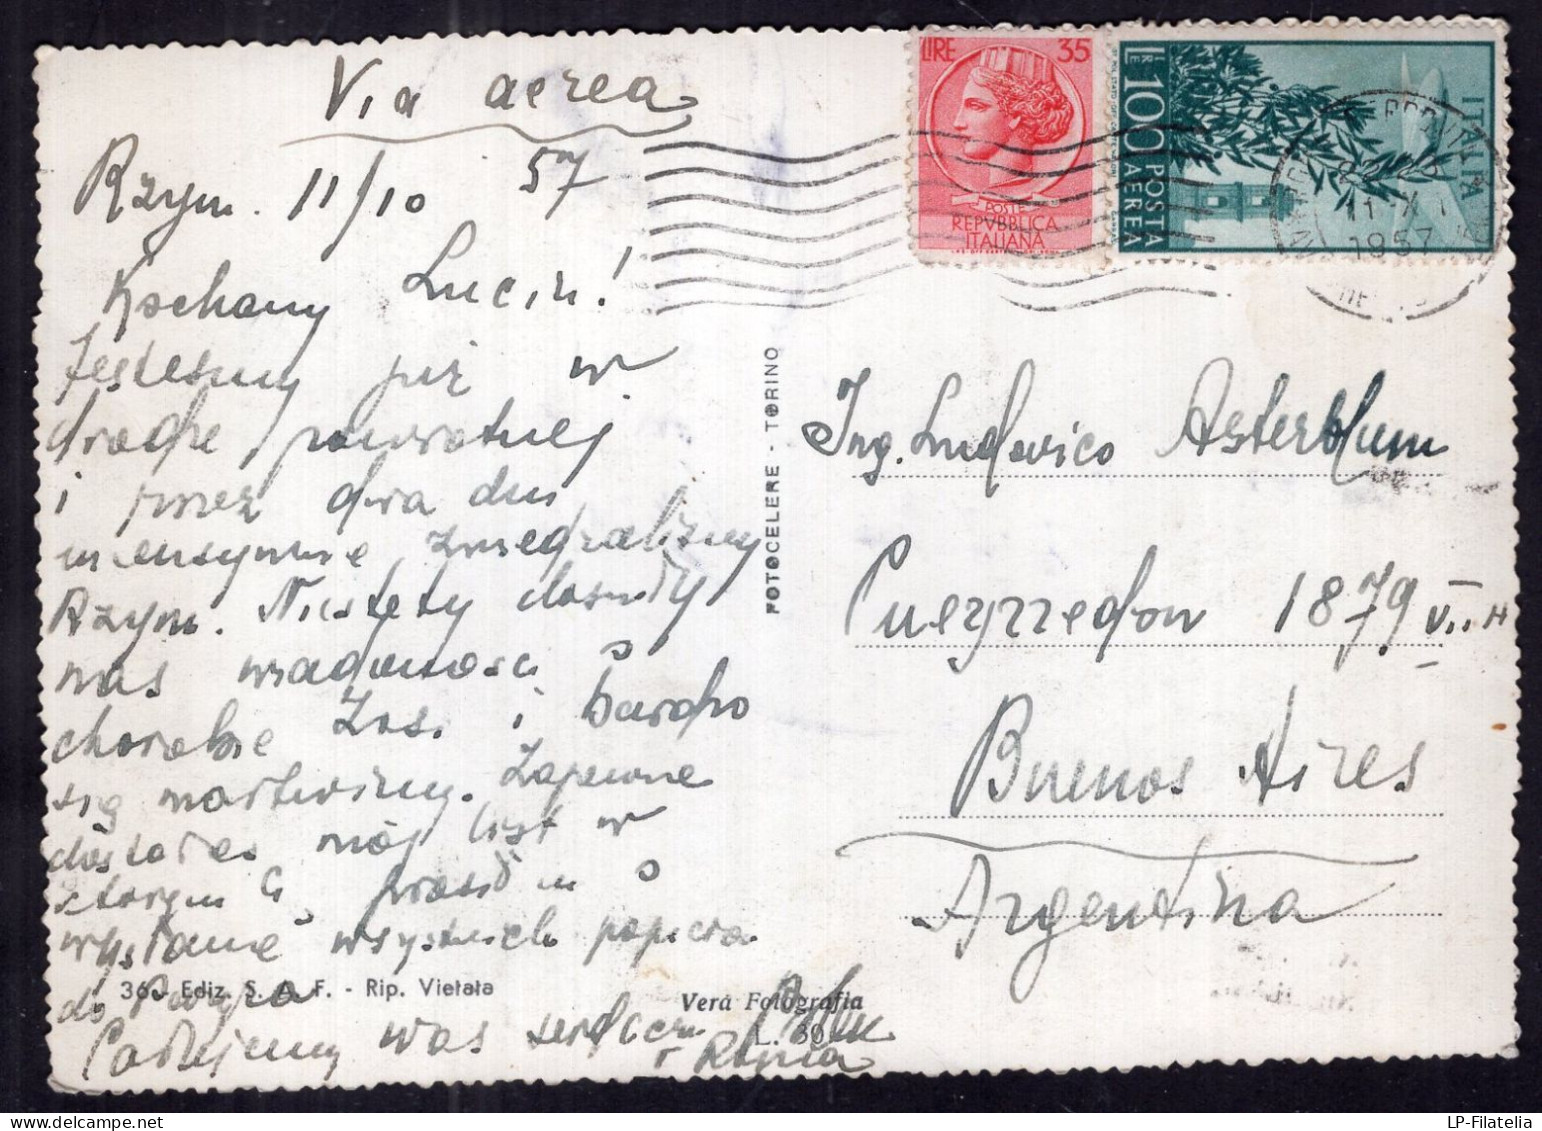 Via aerea
Rzym. 11/10 57
Kochany Luciu!
Jesteśmy już w
drodze powrotnej
i przez dwa dni
intensywnie
Rzym. Niestety doszły
nas wiadomości o
chorobie Zosi i bardzo
się martwimy. Zapewne
dostałeś mój list w
którym Cię prosiłem o
wysłanie wszystkich papierów
do Paryża
Całujemy was serdecznie
LIRE 35
POSTE
REPVBBLICA
ITALIANA
LIRE 100 POSTA AEREA
ITALIA
11·X
1957
FOTOCELERE - TORINO
Ing. Ludovico Asterblum
Pueyrredon 1879 VII H
Buenos Aires
Argentina
Ediz. S. A. F. - Rip. Vietata
Vera Fotografia
LP-Filatelia